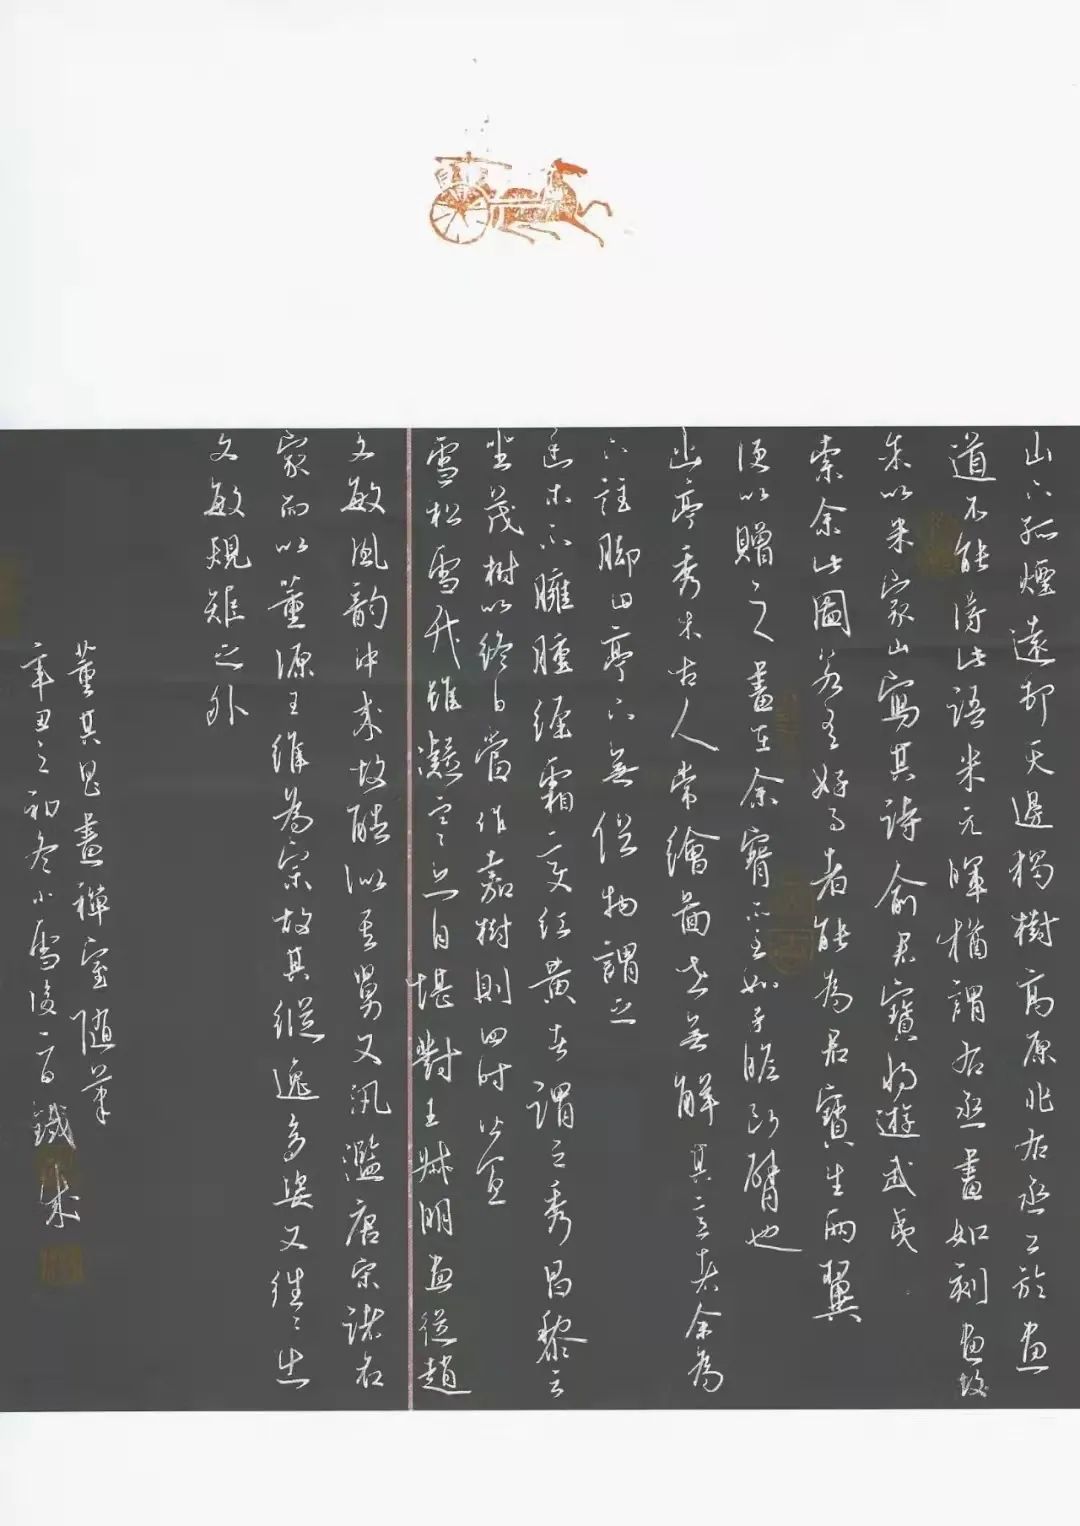 山下孤煙遠邨天邊獨樹高原非右丞工於畫
道不能得此語米元暉猶謂右丞畫如刻畫故
余以米家山寫其詩俞君寶將遊武夷
索余此圖若有好事者能為君寶生兩翼
便以贈之畫在余不至如子瞻斷臂也
山亭秀木古人常繪圖世無解其意者余為
下註脚曰亭下無俗物謂之
幽木不臃腫經霜變紅黃者謂之秀昌黎云
坐茂樹以終日當作嘉樹則四時皆宜
雪松雪竹雖凝寒亦自堪對王叔明畫從趙
文敏風韵中來故酷似其舅又汎濫唐宋諸名
家而以董源王維為宗故其縱逸多姿又往往出
文敏規矩之外
董其昌畫禪室隨筆
辛丑之初冬小雪後一日鐵成